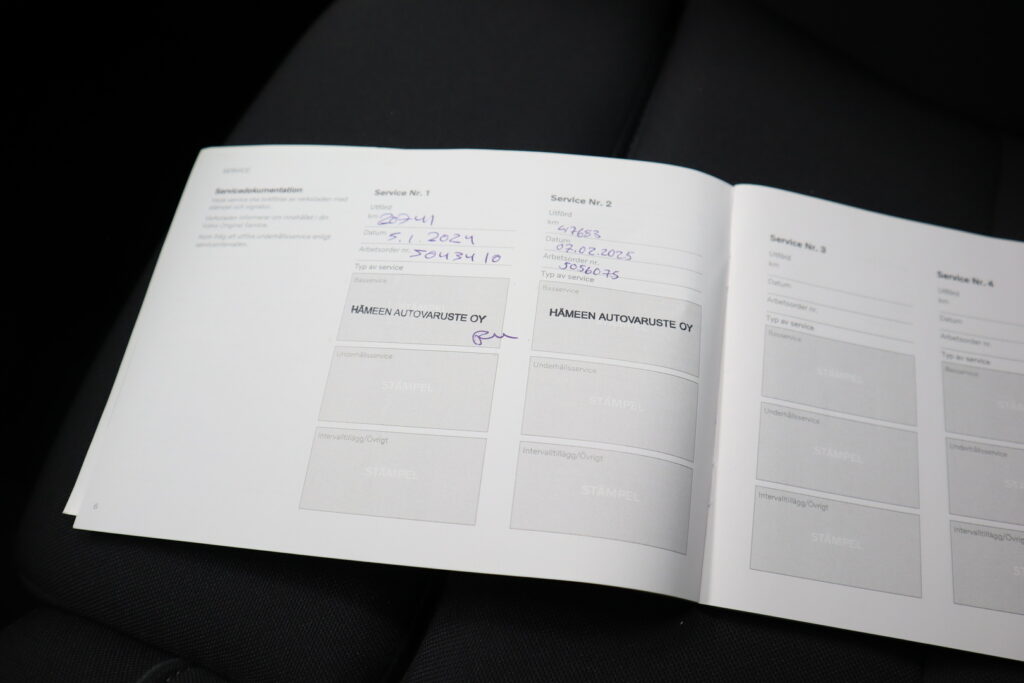 SERVICE
Servicedokumentation
Service Nr. 1
Utförd
km 20741
Datum 5.1.2024
Arbetsorder nr. 5043410
Typ av service
Basservice
STÄMPEL
HÄMEEN AUTOVARUSTE OY
Underhållsservice
STÄMPEL
Intervalltillägg/Övrigt
STÄMPEL
6
Service Nr. 2
Utförd
km 47683
Datum 07.02.2025
Arbetsorder nr. 5056075
Typ av service
Basservice
HÄMEEN AUTOVARUSTE OY
Underhållsservice
STÄMPEL
Intervalltillägg/Övrigt
STÄMPEL
Service Nr. 3
Utförd
km
Datum
Arbetsorder nr.
Typ av service
Basservice
STÄMPEL
Underhållsservice
STÄMPEL
Intervalltillägg/Övrigt
STÄMPEL
Service Nr. 4
Utförd
km
Datum
Arbetsorder nr.
Typ av service
Basservice
Underhållsservice
Intervalltillägg/Övrigt